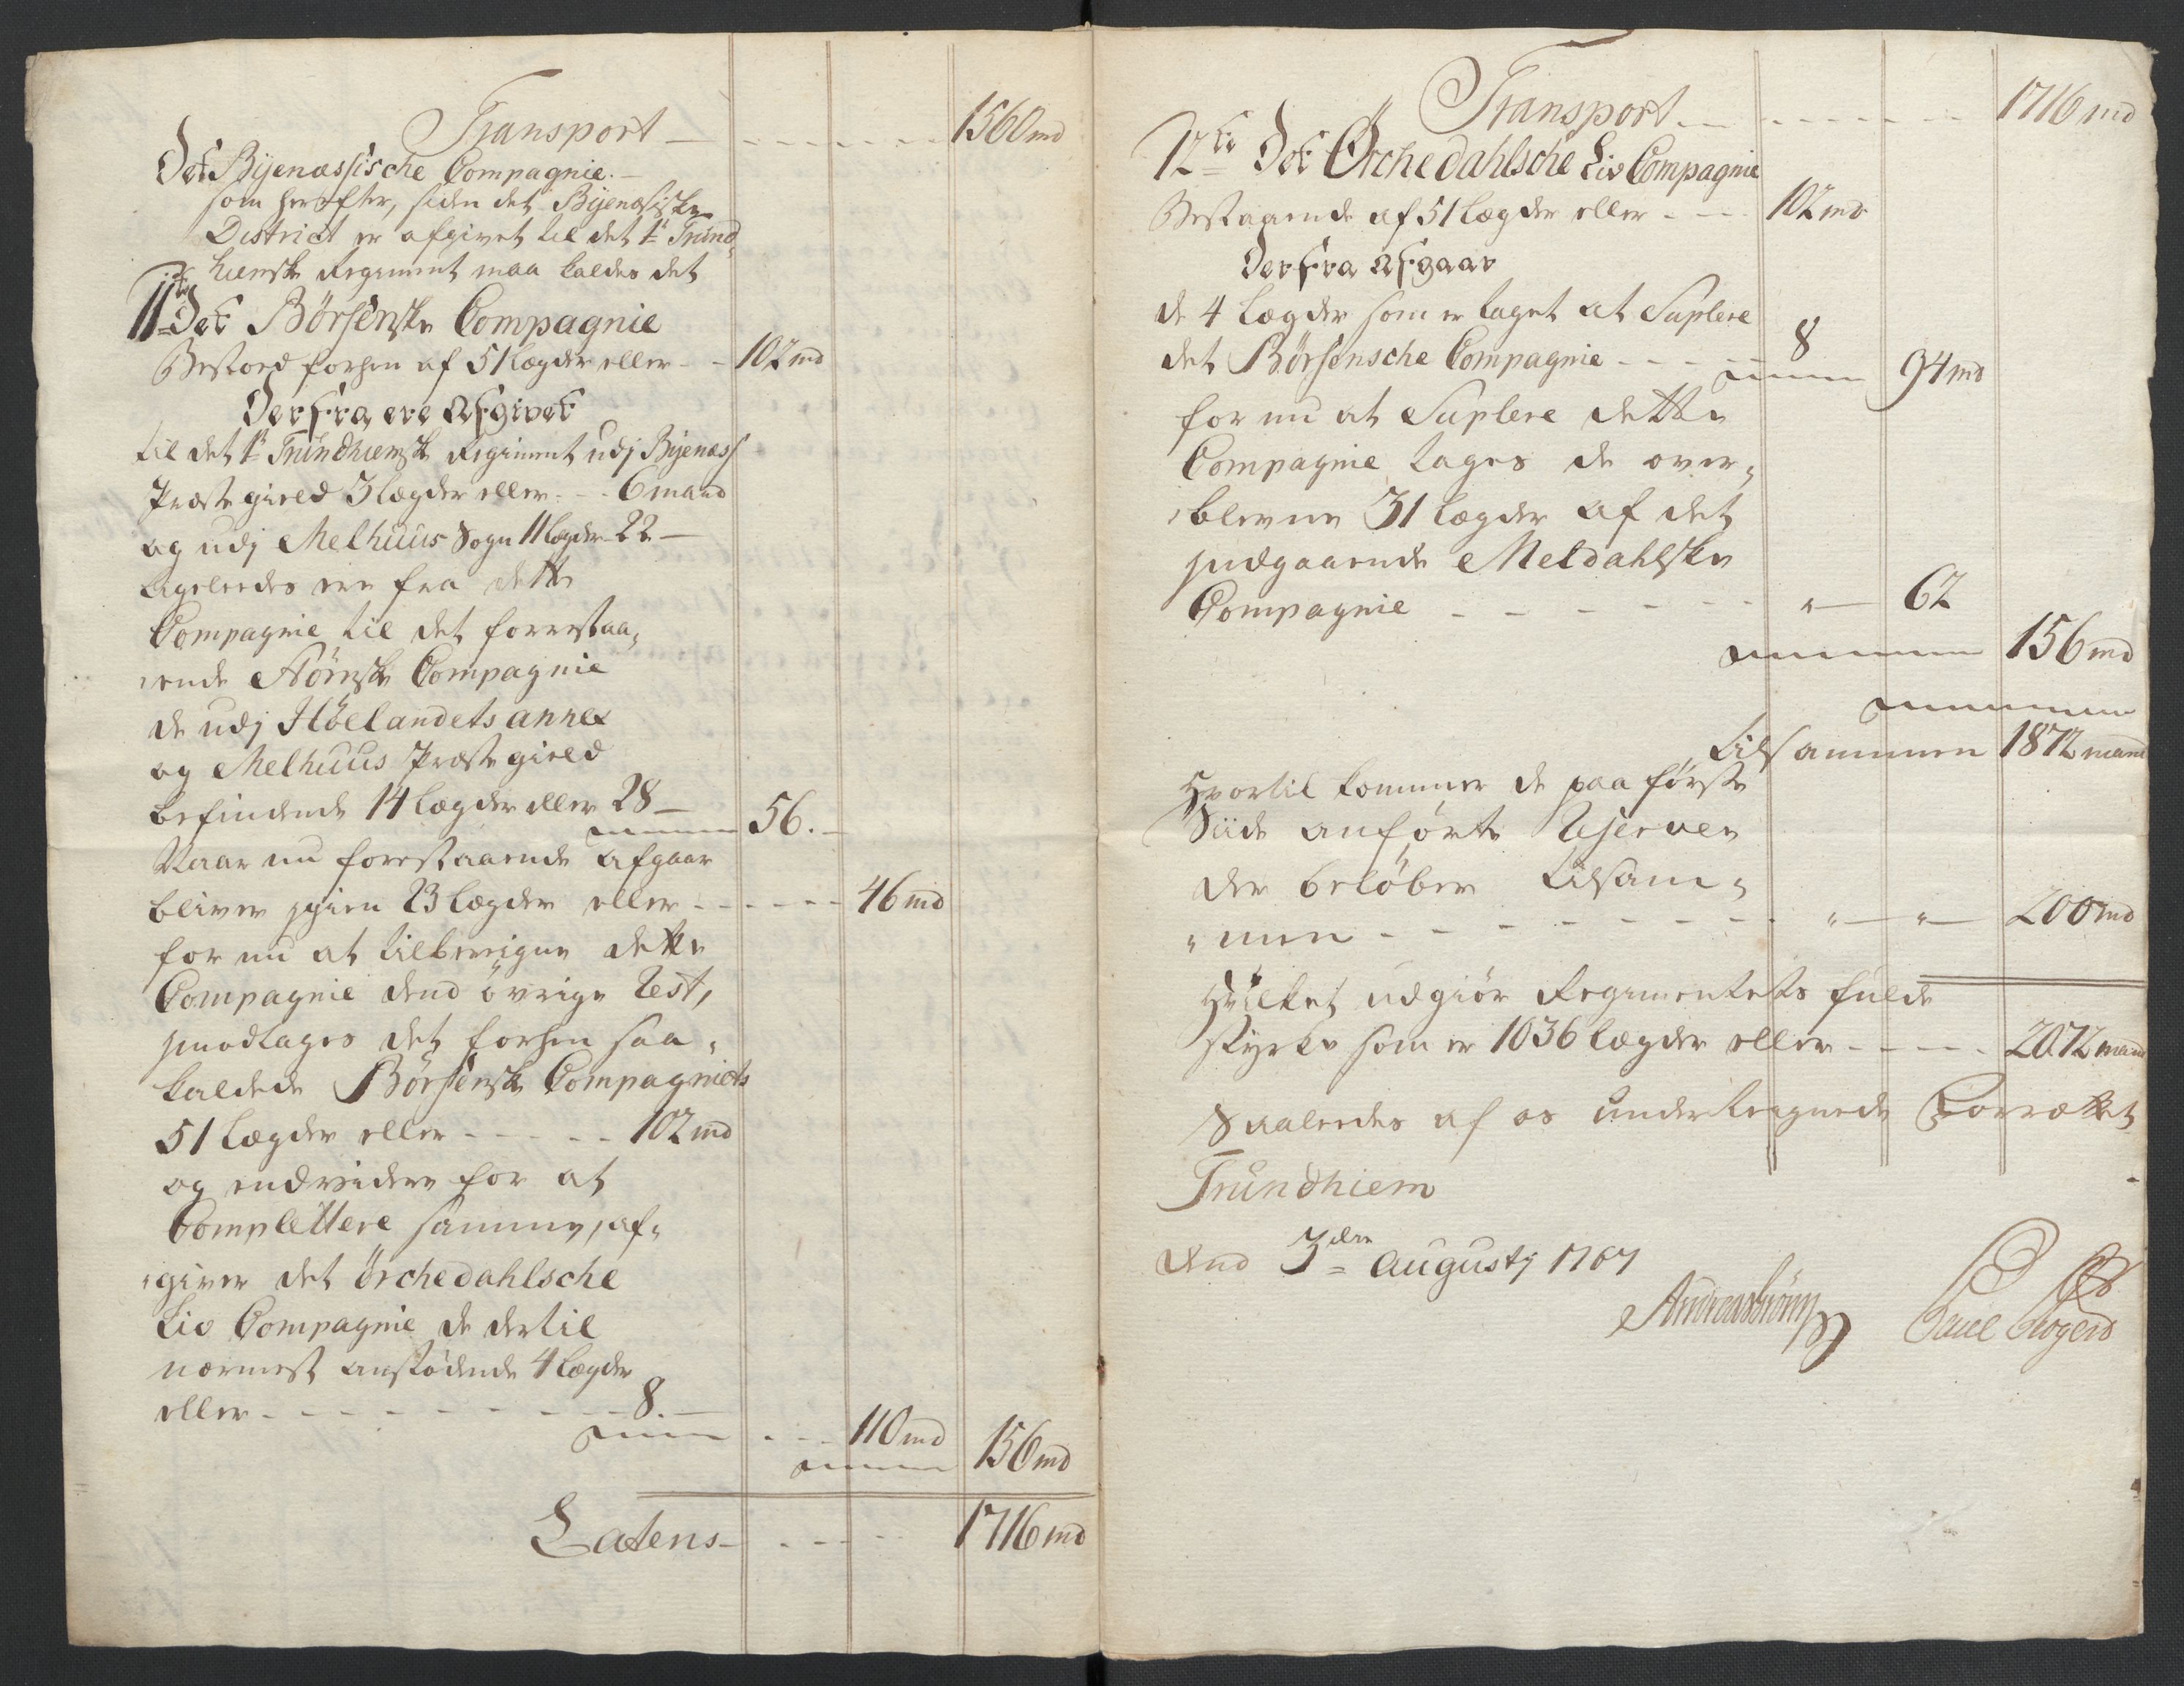 Transport - - - - - - - 1560 md
Det Byenæssische Compagnie. -
som herefter, siden det Byenæsiske
District er afgivet til det 1te Trund,
hiemske Regiment maa kaldes det
11te Det Børsenske Compagnie
Bestoed forhen af 51 Lægder eller - - 102 md
Derfra ere Afgivet
til det 1te Trundhiemske Regiment udj Byenæss
Præstegield 3 Lægder eller - - 6 mand
og udj Melhuus Sogn 11 Lægder 22 -
Ligeleedes ere fra dette
Compagnie til det forrestaa,
ende Compagnie
de udj Høelandets annex
og Melhuus Præstegield
befindende 14 Lægder eller 28 -
56. -
Naar nu forestaaende afgaar
bliver igien 23 Lægder eller - - - - - 46 md
for nu at tilberigne dette
Compagnie dend øvrige Rest,
imodtages det forhen saa,
kaldede Børsenske Compagniets
51 Lægder eller - - - - - 102 md
og endvidere for at
Complettere samme, af,
giver det Örchedahlsche
Liv Compagnie de dertil
nærmest anstødende 4 Lægder
eller - - - - - - - - - 8. -
- - - 110 md 156 md
Latens - - - - 1716 md
Transport - - - - - - - 1716 md
12te Det Örchedahlsche Liv Compagnie
Bestaaende af 51 Lægder eller - - - 102 md
Derfra Afgaar
de 4 Lægder som er taget at Suplere
det Börsensche Compagnie - - - - 8
94 md
for nu at Suplere dette
Compagnie tages de over,
blevne 31 Lægder af det
indgaaende Meldahlske
Compagnie - - - - - - - " - 62
156 md
tilsammen 1872 mand
Hvortil kommer de paa første
Siide anførte Reserver
der beløber tilsam,
men - - - - - - - - " - " - 200 md
Hvilket udgiør Regimentets fulde
styrke som er 1036 Lægder eller - - - - 2072 mand
Saaleedes af os underteignede Forrættet
Trundhiem
dend 3den Augusty 1767